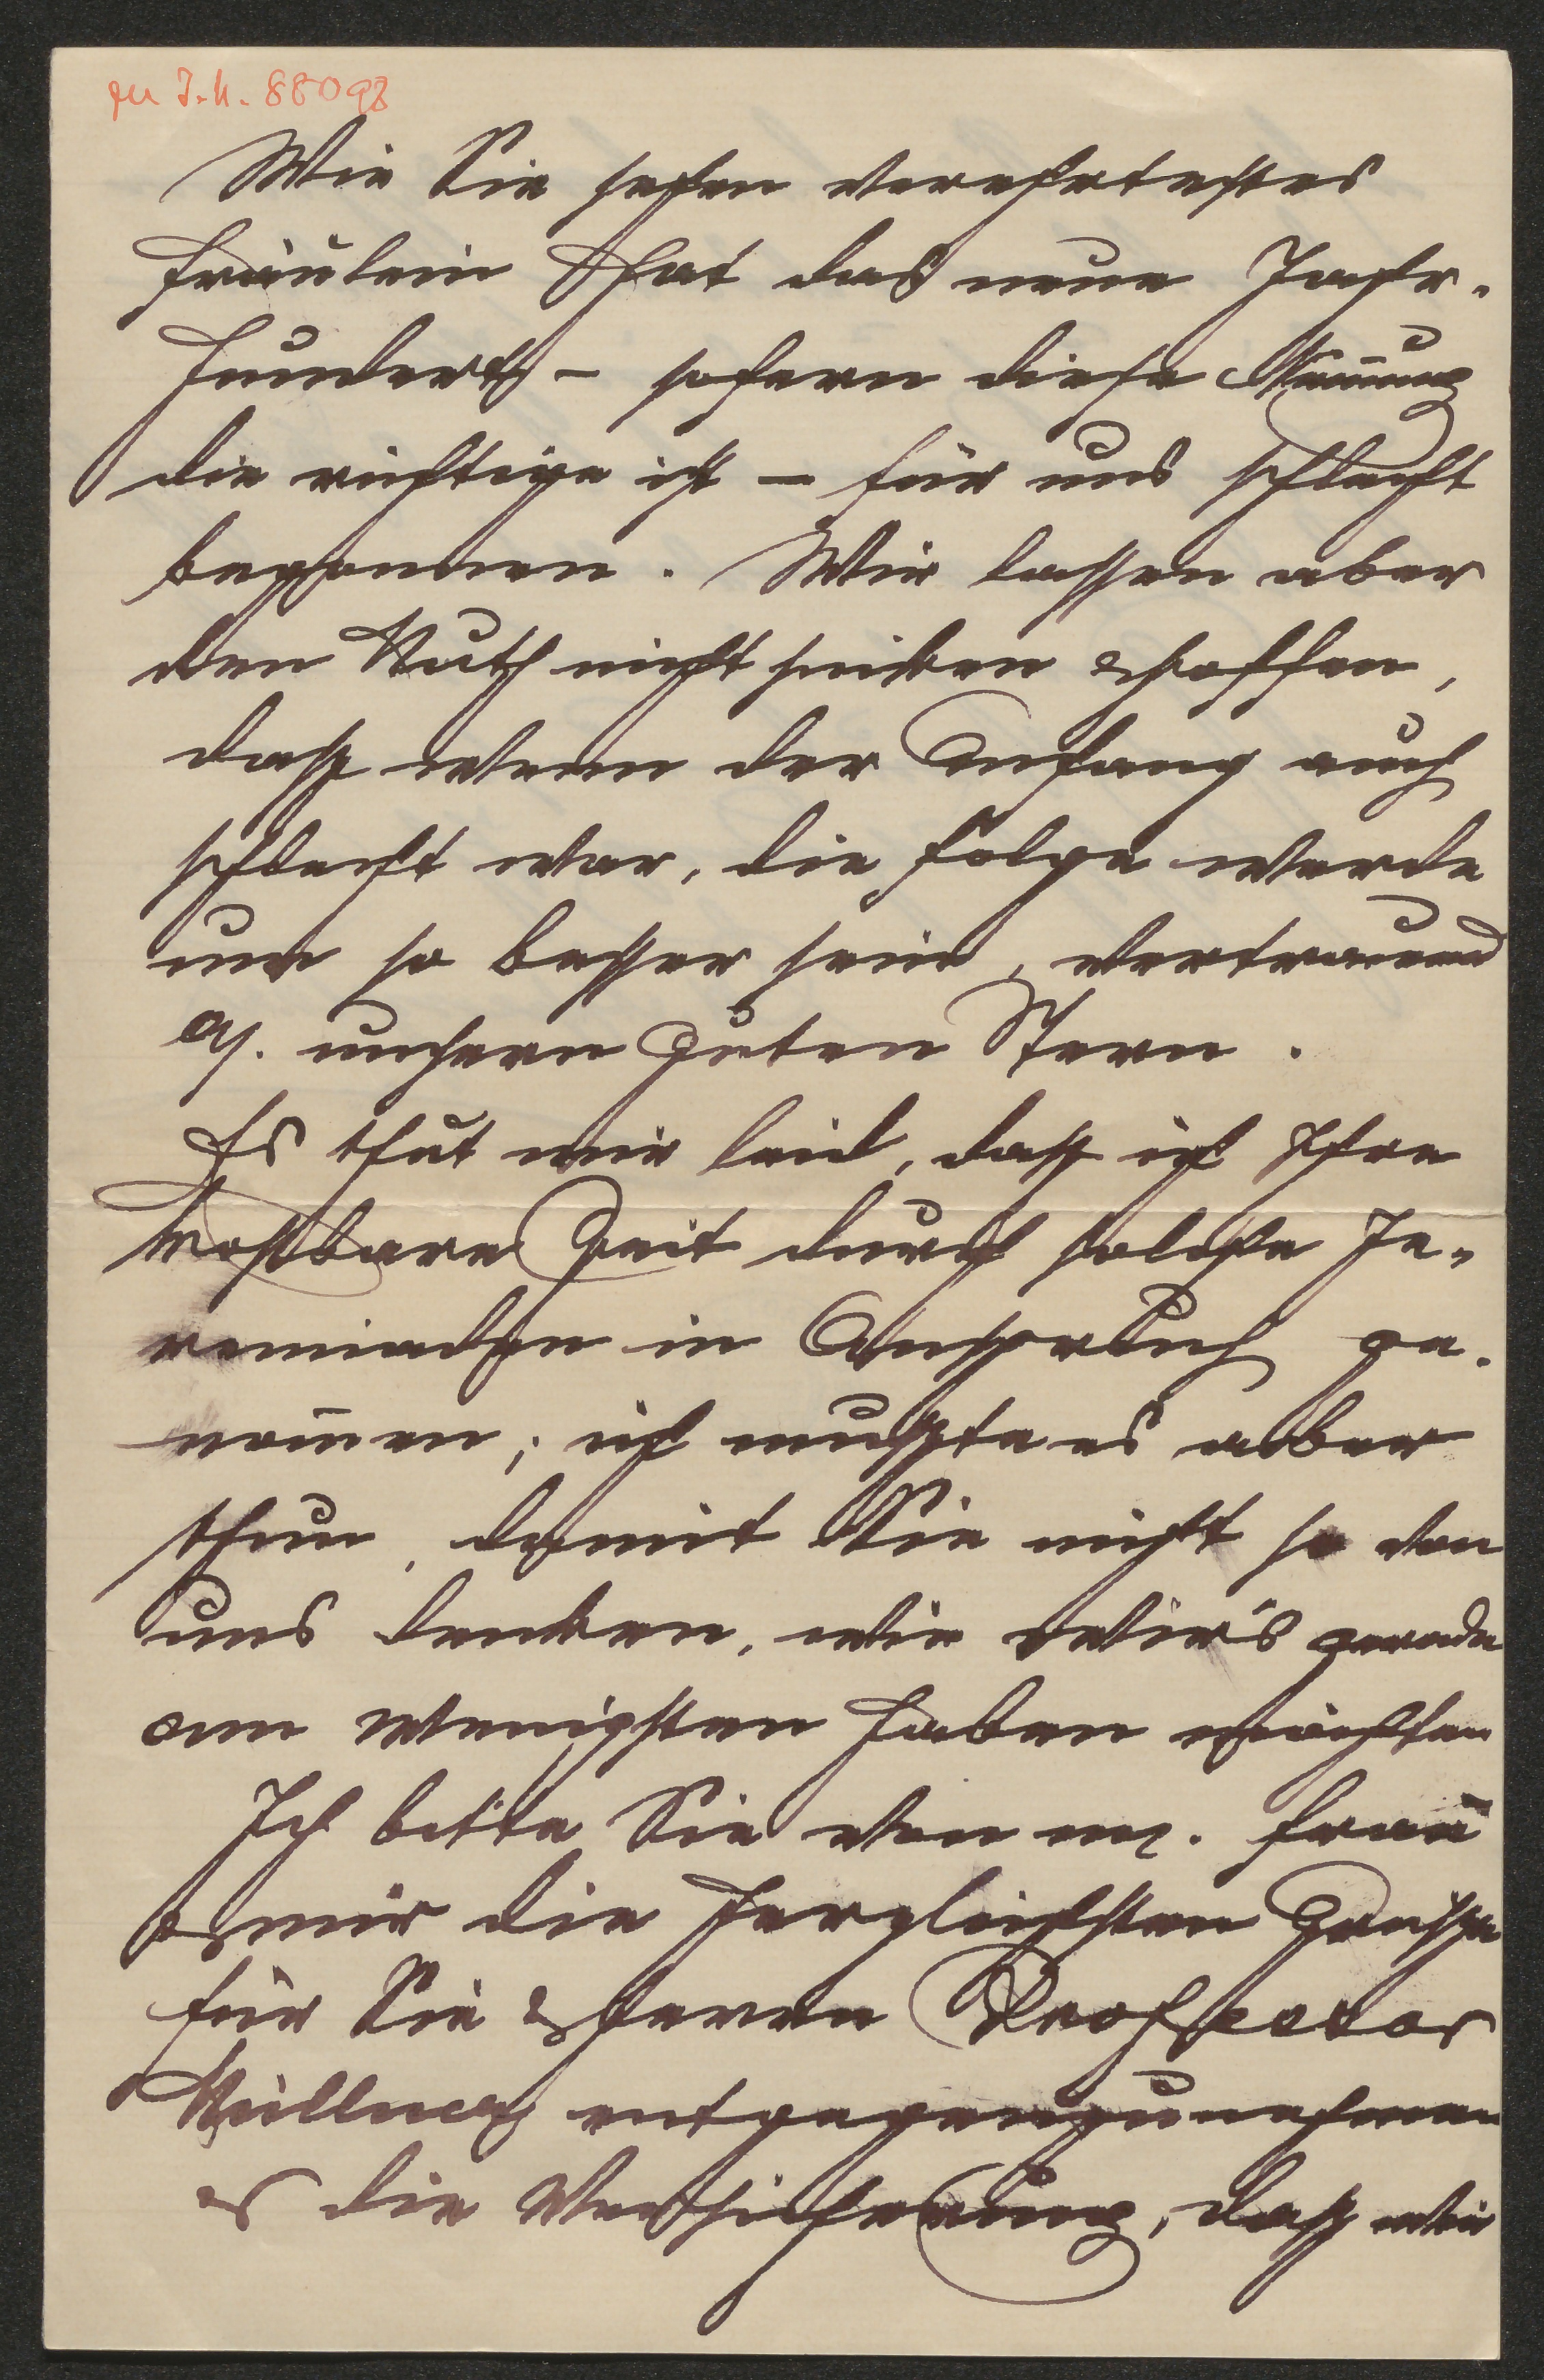 zu I.N. 88098
Wie Sie sehen verehrtestes
Fräulein hat das neue Jahr-
hundert – sofern diese Meinung
die richtige ist – für uns schlecht
begonnen. Wir lassen aber
den Muth nicht sinken & hoffen,
dass wenn der Anfang auch
schlecht war, die Folge werde
um so besser sein, vertrauend
a/. unsern guten Stern.
Es thut mir leid, dass ich Ihre
kostbare Zeit durch solche Je-
remiaden in Anspruch ge-
nom̅en; ich musste es aber
thun, damit Sie nicht so von
uns denken, wie wir's gerade
am wenigsten haben möchten
Ich bitte Sie von m. Frau
& mir die herzlichsten Grüsse
für Sie & Herrn Professor
Müllner entgegenzunehmen
& die Versicherung, dass wir